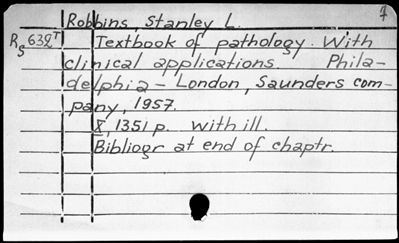 7
Robbins, Stanley L.
Rs 632T Textbook of pathology. With
clinical applications Phila-
delphia - London, Saunders com-
pany, 1957.
X, 1351 p. With ill.
Bibliogr at end of chaptr.